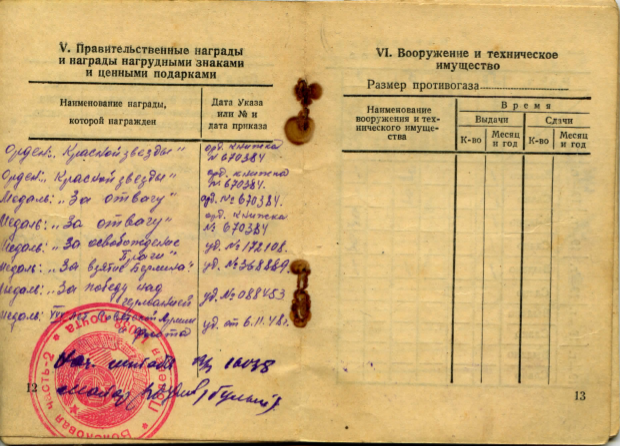 V. Правительственные награды
и награды нагрудными знаками
и ценными подарками
Наименование награды,
которой награжден
Дата Указа
или № и
дата приказа
Орден: „Красной звезды"
орд. книжка
№ 670384.
Орден: „Красной звезды"
орд. книжка
№ 670384.
Медаль: „За отвагу"
орд. № 670384.
Медаль: „За отвагу"
орд. книжка
№ 670384
Медаль: „За освобождение
Праги"
уд. № 172108.
Медаль: „За взятие Берлина"
уд. № 368889
Медаль: „За победу над
германией
уд. № 088453
Медаль: Советской Армии
и флота
уд. от 6.11.48г.
Нач. штаба 16038
майор
Войсковая часть-2
Полевая почта
12
VI. Вооружение и техническое
имущество
Размер противогаза
Наименование
вооружения и тех-
нического имуще-
ства
Время
Выдачи
Сдачи
К-во
Месяц
и год
К-во
Месяц
и год
13